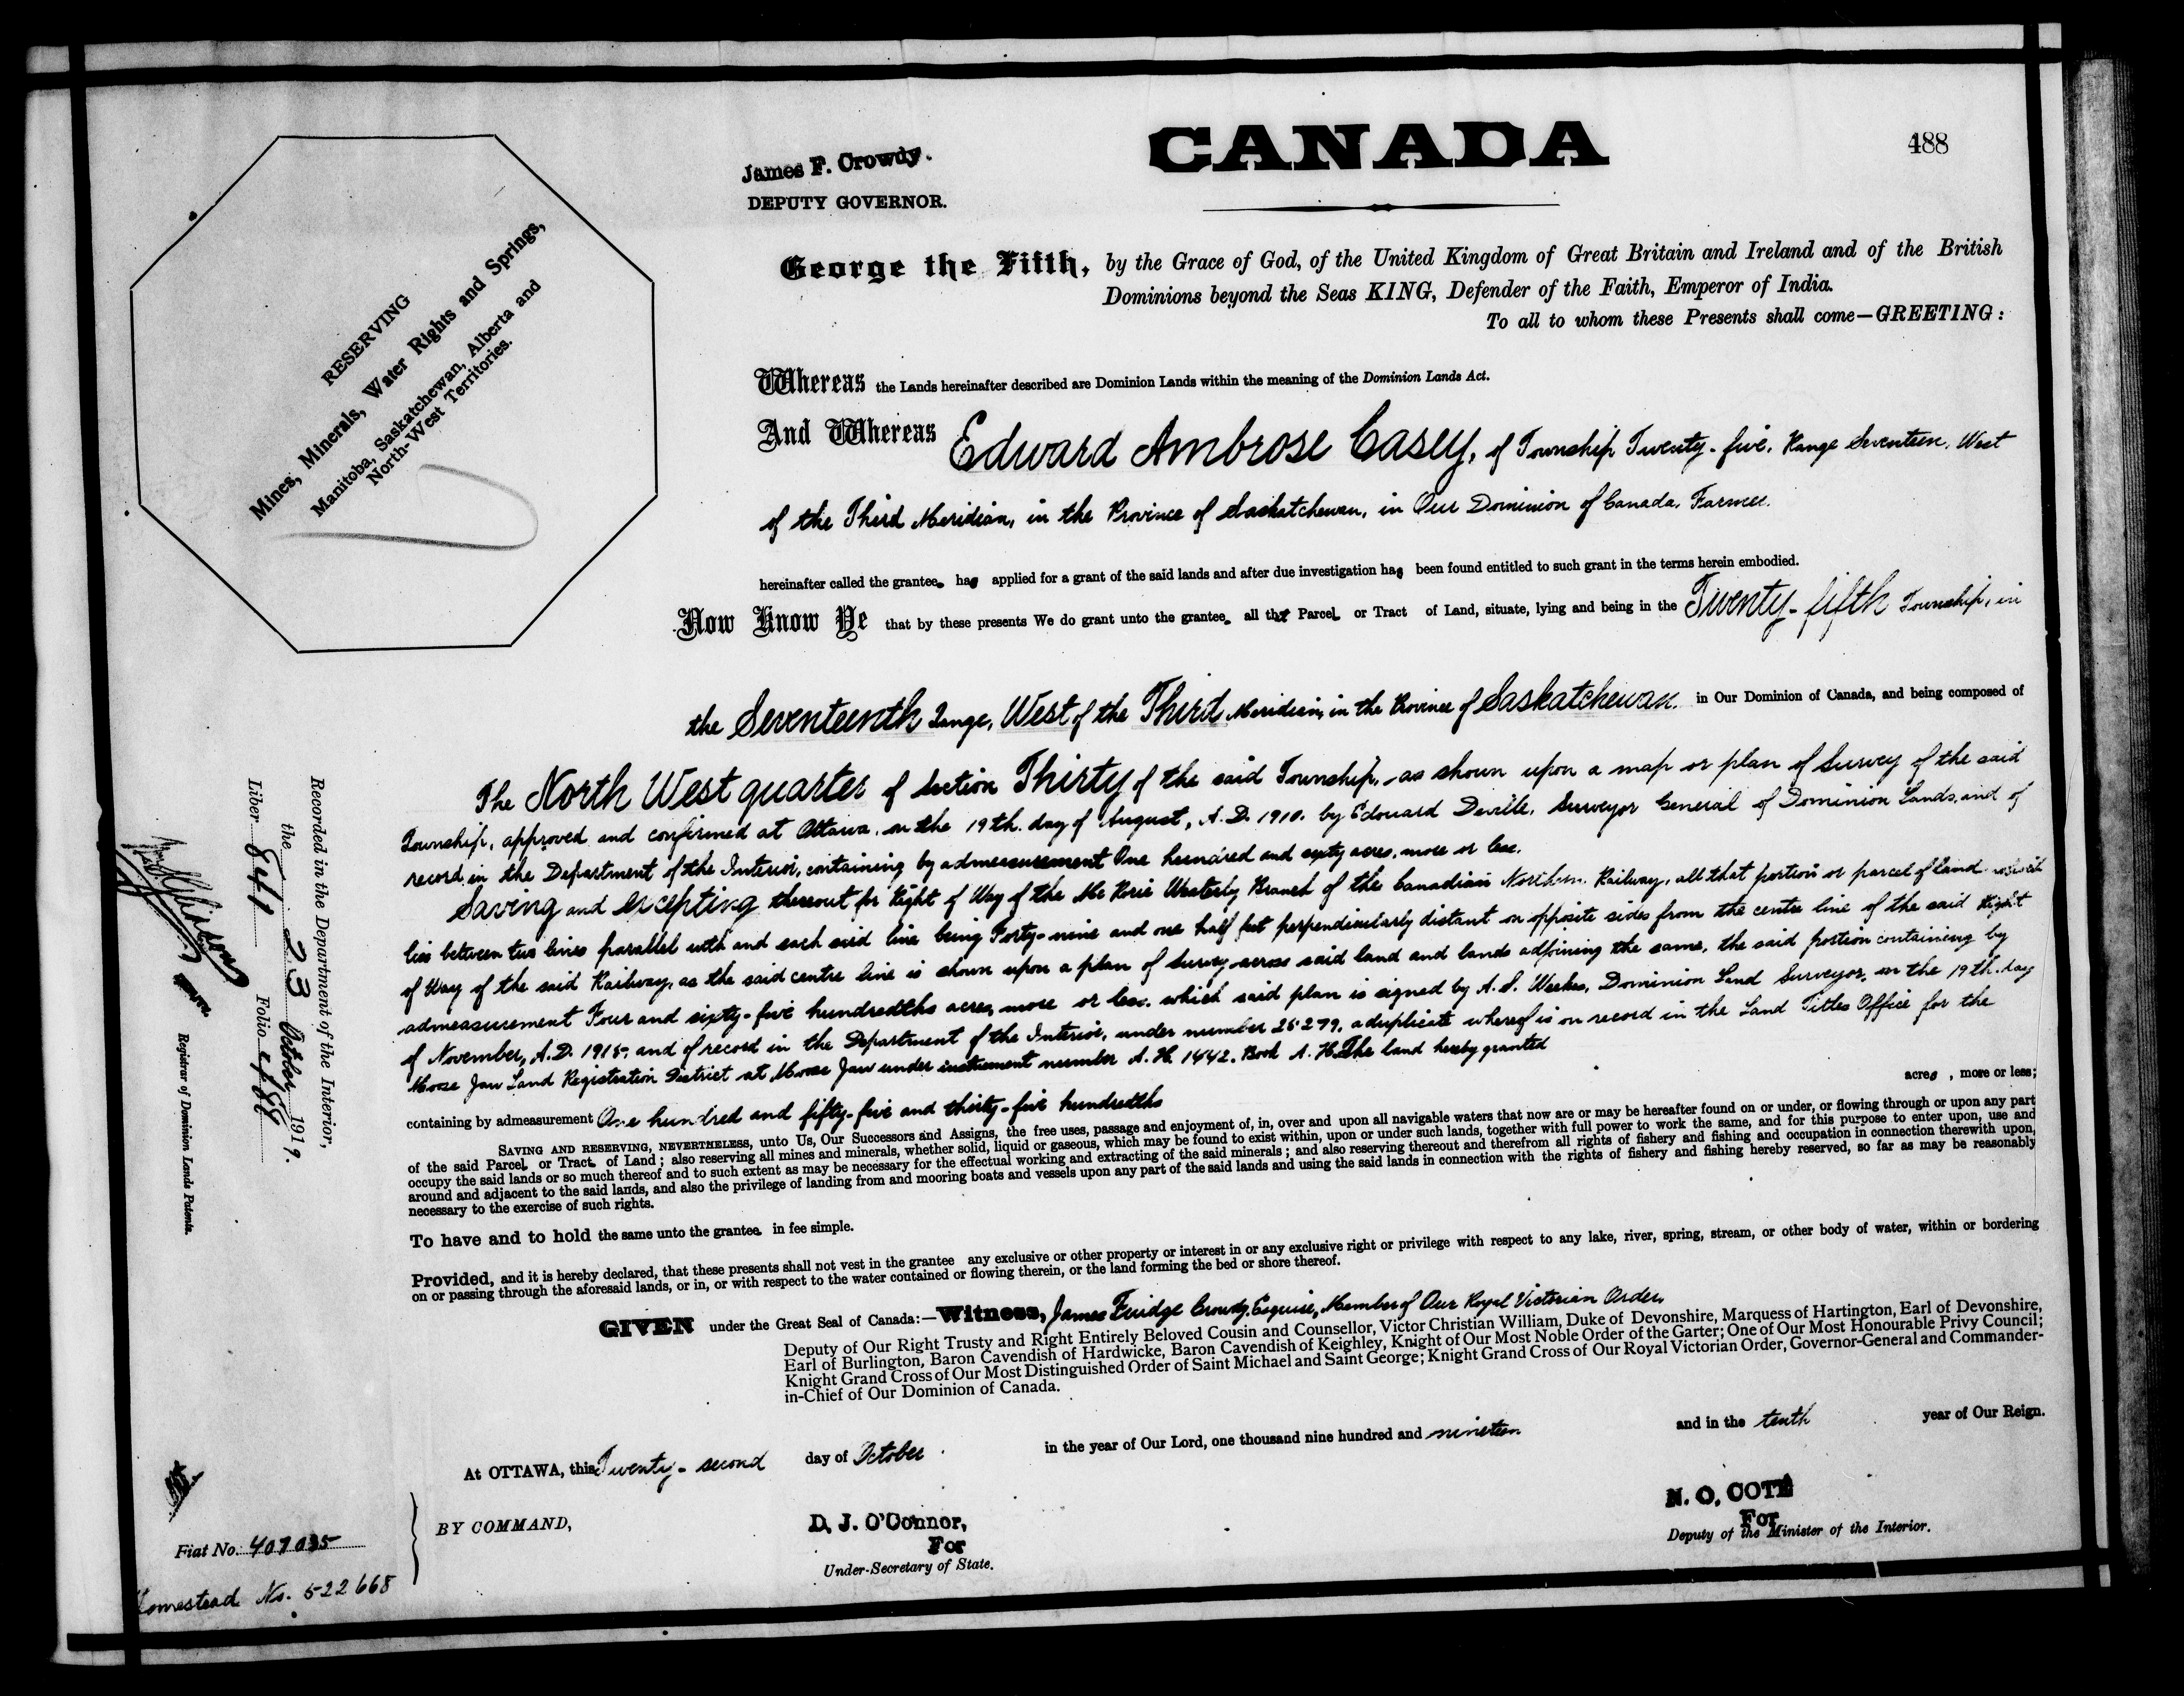 CANADA
488
James F. Crowdy.
DEPUTY GOVERNOR.
RESERVING
Mines, Minerals, Water Rights and Springs,
Manitoba, Saskatchewan, Alberta and
North-West Territories.
George the Fifth, by the Grace of God, of the United Kingdom of Great Britain and Ireland and of the British
Dominions beyond the Seas KING, Defender of the Faith, Emperor of India.
To all to whom these Presents shall come—GREETING:
Whereas the Lands hereinafter described are Dominion Lands within the meaning of the Dominion Lands Act.
And Whereas Edward Ambrose Casey, of Township Twenty-five, Range Seventeen, West
of the Third Meridian, in the Province of Saskatchewan, in Our Dominion of Canada, Farmer.
hereinafter called the grantee has applied for a grant of the said lands and after due investigation has been found entitled to such grant in the terms herein embodied.
Now Know Ye that by these presents We do grant unto the grantee all that Parcel or Tract of Land, situate, lying and being in the Twenty-fifth Township, in
the Seventeenth Range, West of the Third Meridian, in the Province of Saskatchewan. in Our Dominion of Canada, and being composed of
The North West quarter of Section Thirty of the said Township, as shown upon a map or plan of Survey of the said
Township, approved and confirmed at Ottawa, on the 19th. day of August, A.D. 1910. by Edouard Deville, Surveyor General of Dominion Lands, and of
record in the Department of the Interior, containing by admeasurement One hundred and sixty acres, more or less.
Saving and excepting thereout for Right of Way of the Mc Rorie Westerly Branch of the Canadian Northern Railway, all that portion or parcel of land which
lies between two lines parallel with and each said line being Forty-nine and one half feet perpendicularly distant on opposite sides from the centre line of the said Right
of Way of the said Railway, as the said centre line is shown upon a plan of Survey across said land and lands adjoining the same, the said portion containing by
admeasurement Four and sixty-five hundredths acres, more or less. which said plan is signed by A. S. Weekes, Dominion Land Surveyor, on the 19th. day
of November, A.D. 1915. and of record in the Department of the Interior, under number 25279, a duplicate whereof is on record in the Land Titles Office for the
Moose Jaw Land Registration District at Moose Jaw under instrument number A. H. 1442. Book A. H. The land hereby granted
containing by admeasurement One hundred and fifty-five and thirty-five hundredths acres, more or less;
SAVING AND RESERVING, NEVERTHELESS, unto Us, Our Successors and Assigns, the free uses, passage and enjoyment of, in, over and upon all navigable waters that now are or may be hereafter found on or under, or flowing through or upon any part
of the said Parcel or Tract of Land; also reserving all mines and minerals, whether solid, liquid or gaseous, which may be found to exist within, upon or under such lands, together with full power to work the same, and for this purpose to enter upon, use and
occupy the said lands or so much thereof and to such extent as may be necessary for the effectual working and extracting of the said minerals; and also reserving thereout and therefrom all rights of fishery and fishing and occupation in connection therewith upon,
around and adjacent to the said lands, and also the privilege of landing from and mooring boats and vessels upon any part of the said lands and using the said lands in connection with the rights of fishery and fishing hereby reserved, so far as may be reasonably
necessary to the exercise of such rights.
To have and to hold the same unto the grantee in fee simple.
Provided, and it is hereby declared, that these presents shall not vest in the grantee any exclusive or other property or interest in or any exclusive right or privilege with respect to any lake, river, spring, stream, or other body of water, within or bordering
on or passing through the aforesaid lands, or in, or with respect to the water contained or flowing therein, or the land forming the bed or shore thereof.
GIVEN under the Great Seal of Canada:—Witness, James Fuidge Crowdy, Esquire, Member of Our Royal Victorian Order,
Deputy of Our Right Trusty and Right Entirely Beloved Cousin and Counsellor, Victor Christian William, Duke of Devonshire, Marquess of Hartington, Earl of Devonshire,
Earl of Burlington, Baron Cavendish of Hardwicke, Baron Cavendish of Keighley, Knight of Our Most Noble Order of the Garter; One of Our Most Honourable Privy Council;
Knight Grand Cross of Our Most Distinguished Order of Saint Michael and Saint George; Knight Grand Cross of Our Royal Victorian Order, Governor-General and Commander-
in-Chief of Our Dominion of Canada.
At OTTAWA, this Twenty-second day of October in the year of Our Lord, one thousand nine hundred and nineteen and in the tenth year of Our Reign.
BY COMMAND,
D. J. O'Connor,
For
Under-Secretary of State.
N. O. COTÉ
For
Deputy of the Minister of the Interior.
Recorded in the Department of the Interior,
the 23 October 1919.
Liber 841 Folio 488
Registrar of Dominion Lands Patents.
Fiat No. 407035
Homestead No. 522668